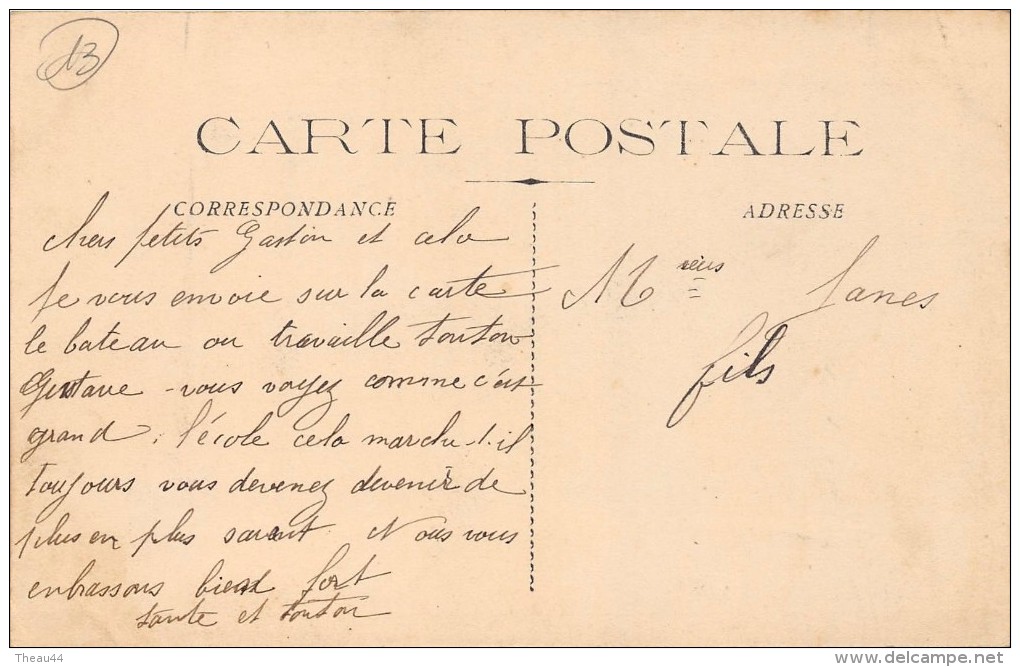 13
CARTE POSTALE
CORRESPONDANCE
ADRESSE
chers petits Gaston et
Je vous envoie sur la carte
le bateau ou travaille tonton
Gustave - vous voyez comme c'est
grand, l'école cela marche-t-il
toujours vous devenez devenir de
plus en plus savant. Nous vous
enbrassons bien fort
tante et tonton
Mrcius
fils
Theau44
delcampe.net